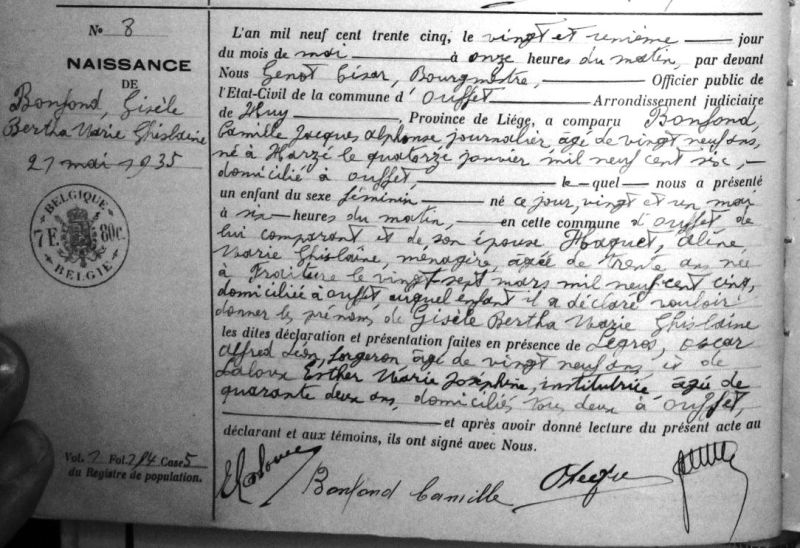 N° 8
NAISSANCE
DE
Bonfond, Gisèle
Bertha Marie Ghislaine
21 mai 1935
BELGIQUE
7F. 80c.
BELGIE
Vol. 2 Fol. 214 Case 5
du Registre de population.
L'an mil neuf cent trente cinq, le vingt et unième jour
du mois de mai à onze heures du matin, par devant
Nous Genot César, Bourgmestre, Officier public de
l'Etat-Civil de la commune d'Ouffet Arrondissement judiciaire
de Huy, Province de Liége, a comparu Bonfond,
Camille Jacques Alphonse journalier, âgé de vingt neuf ans,
né à Harzé le quatorze janvier mil neuf cent six,
domicilié à Ouffet, le quel nous a présenté
un enfant du sexe féminin né ce jour, vingt et un mai
à six heures du matin, en cette commune d'Ouffet de
lui comparant et de son épouse Haquet, Aline,
Marie Ghislaine, ménagère, âgée de trente ans née
à le vingt-sept mars mil neuf cent cinq,
domiciliée à Ouffet auquel enfant il a déclaré vouloir
donner les prénoms de Gisèle Bertha Marie Ghislaine
les dites déclaration et présentation faites en présence de Legros, Oscar
Alfred Léon, forgeron âgé de vingt neuf ans, et de
Laloux Esther Marie Joséphine, institutrice âgée de
quarante deux ans, domiciliés tous deux à Ouffet,
et après avoir donné lecture du présent acte au
déclarant et aux témoins, ils ont signé avec Nous.
ELaloux Bonfond Camille